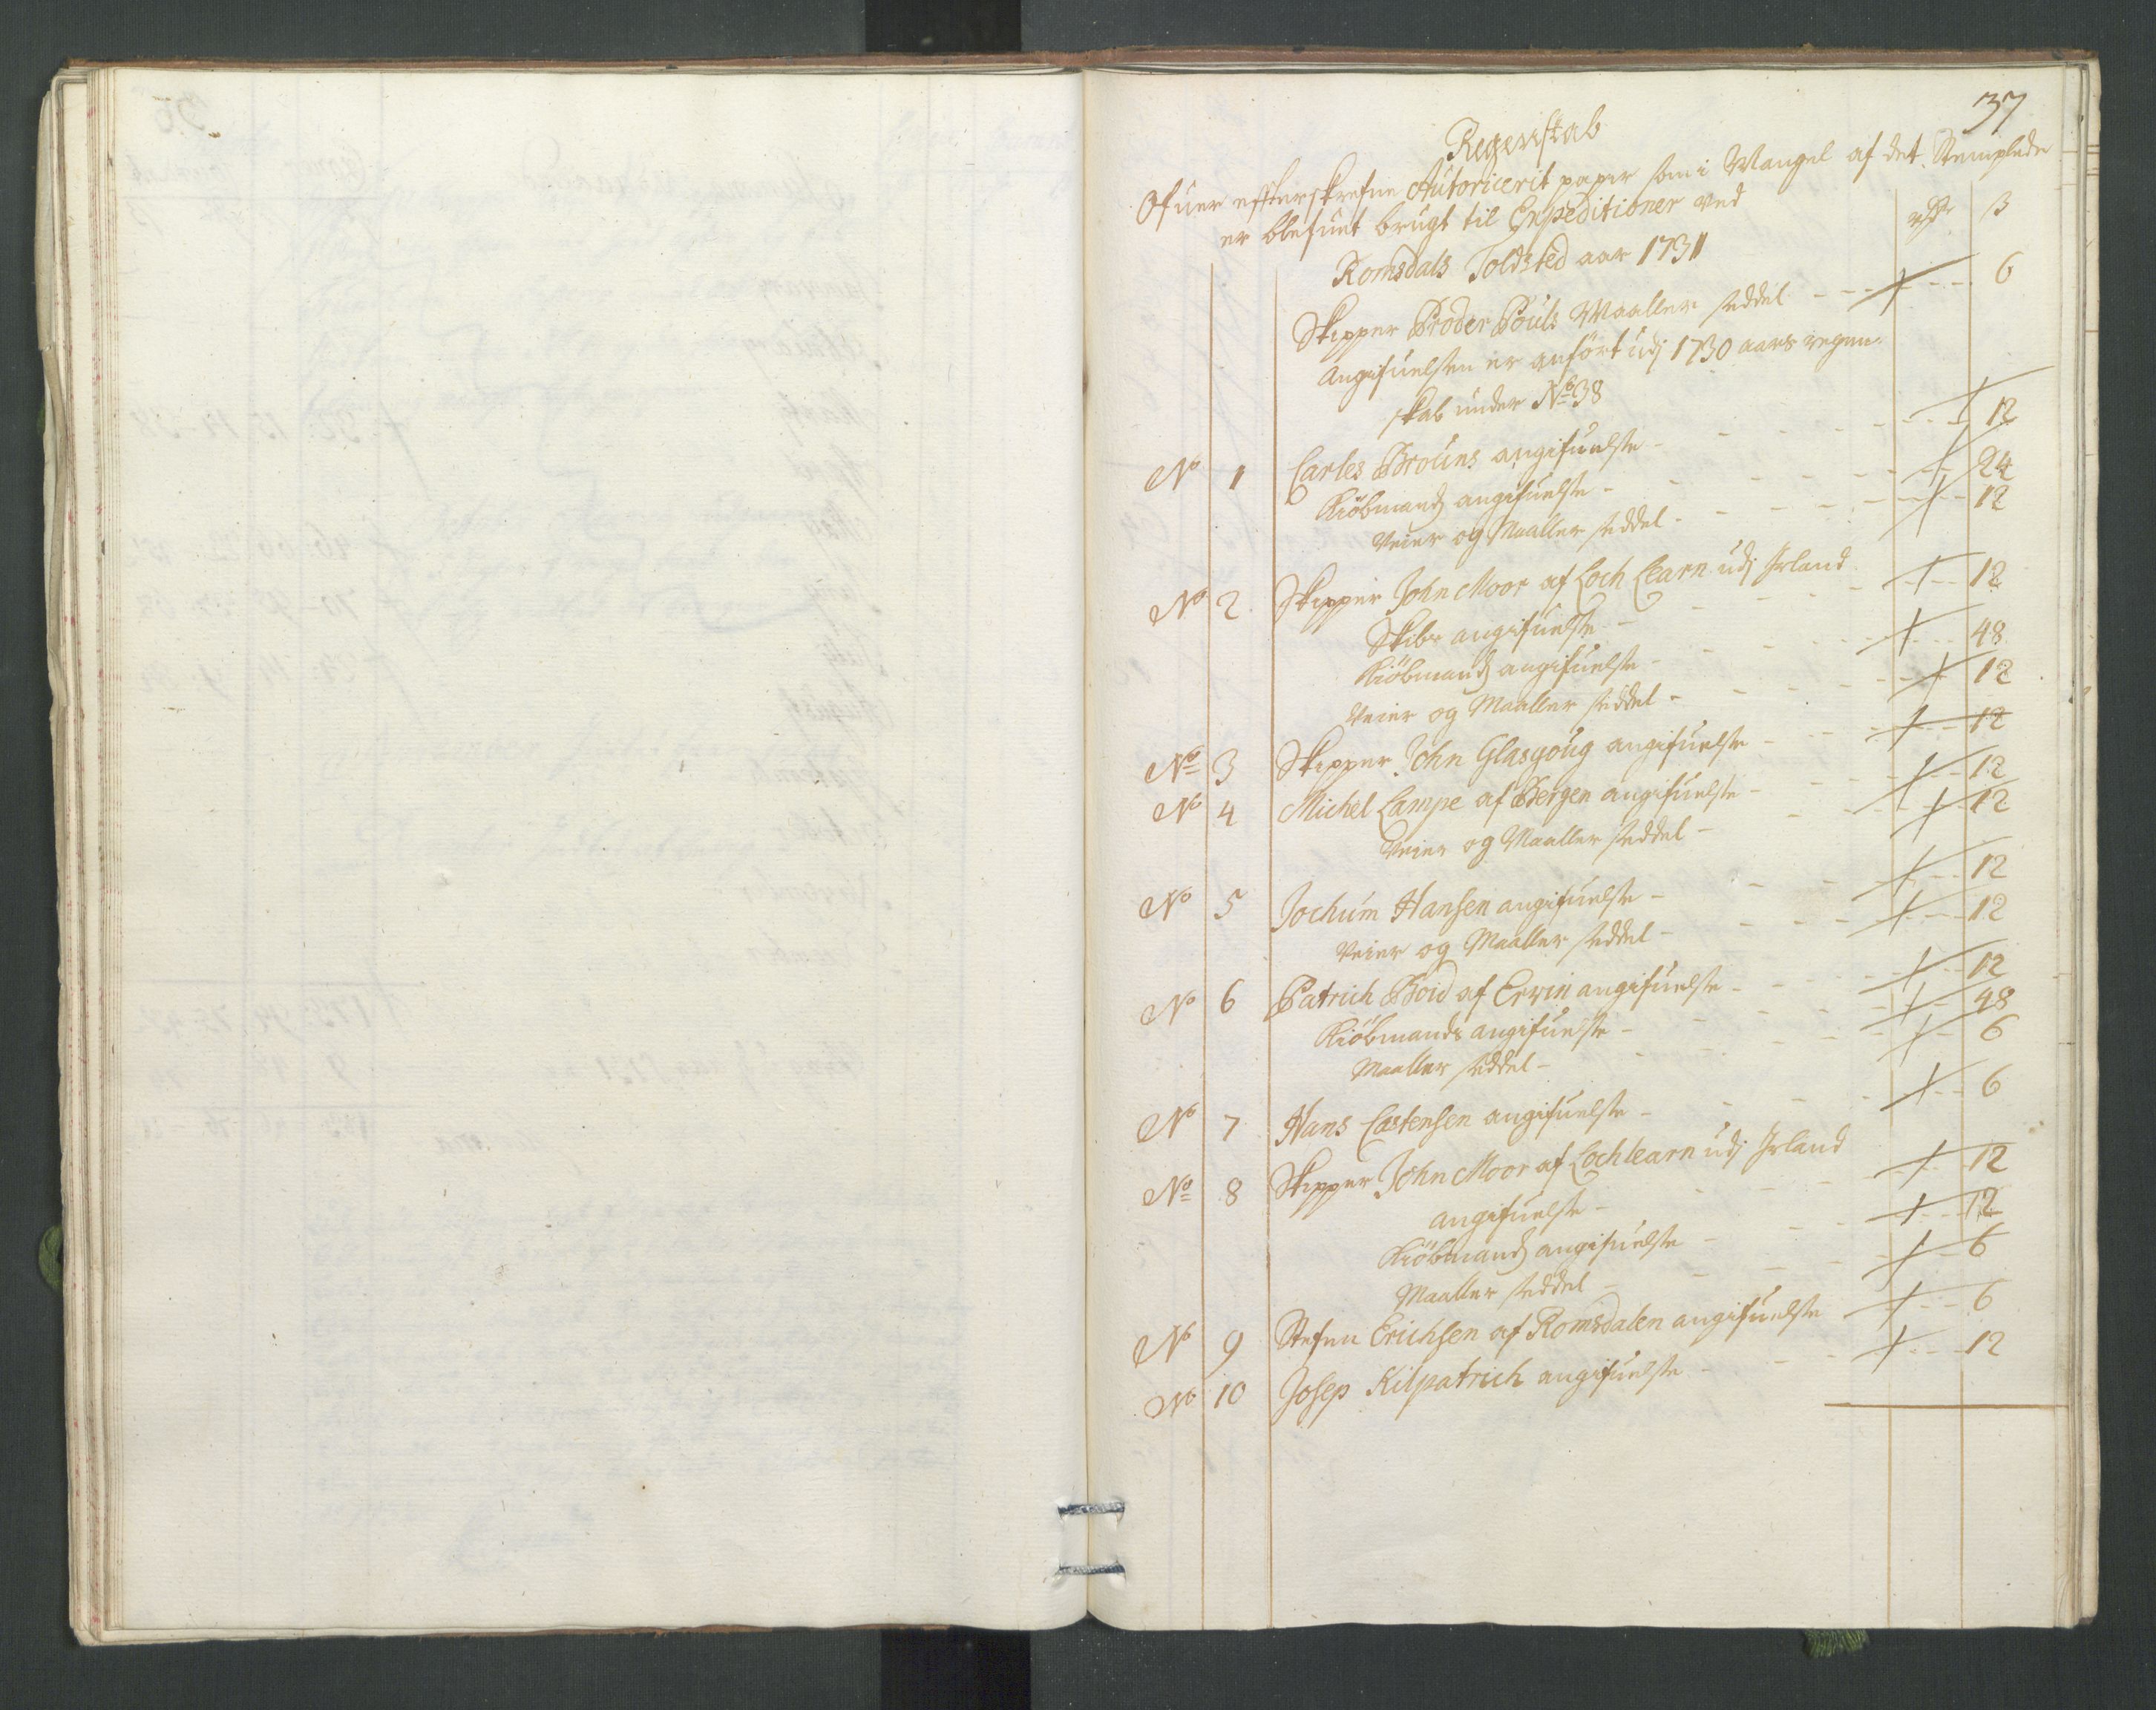 37
Regenskab
Ofuer effterskrefne Autoricerit papir som i Mangel af det Stemplede
er blefuet brugt til Expeditioner ved
Romsdals Toldsted aar 1731
rdr ß
Skipper Broder Pouls Maaller seddel - - - - - 6
Angifuelsen er anført udj 1730 aars regen-
skab under No 38
No 1 Carles Brouns angifuelse - - - - - 12
Kiöbmands angifuelse - - - - - 24
Veier og Maaller seddel - - - - - 12
No 2 Skipper John Moor af Loch Learn udj Irland
Skibs angifuelse - - - - - 12
Kiöbmands angifuelse - - - - - 48
Veier og Maaller seddel - - - - - 12
No 3 Skipper John Glasgoug angifuelse - - - - 12
No 4 Michel Lampe af Bergen angifuelse - - - - 12
Veier og Maaller seddel - - - - 12
No 5 Jochum Hansen angifuelse - - - - 12
Veier og Maaller seddel - - - - 12
No 6 Patrich Boid af Erwin angifuelse - - - - 12
Kiöbmands angifuelse - - - - 48
Maaller seddel - - - - 6
No 7 Hans Castensen angifuelse - - - - 6
No 8 Skipper John Moor af Lochlearn udj Irland
angifuelse - - - - 12
Kiöbmands angifuelse - - - - 12
Maaller seddel - - - - 6
No 9 Stefen Erichsen af Romsdalen angifuelse - - - 6
No 10 Josep Kilpatrich angifuelse - - - - 12